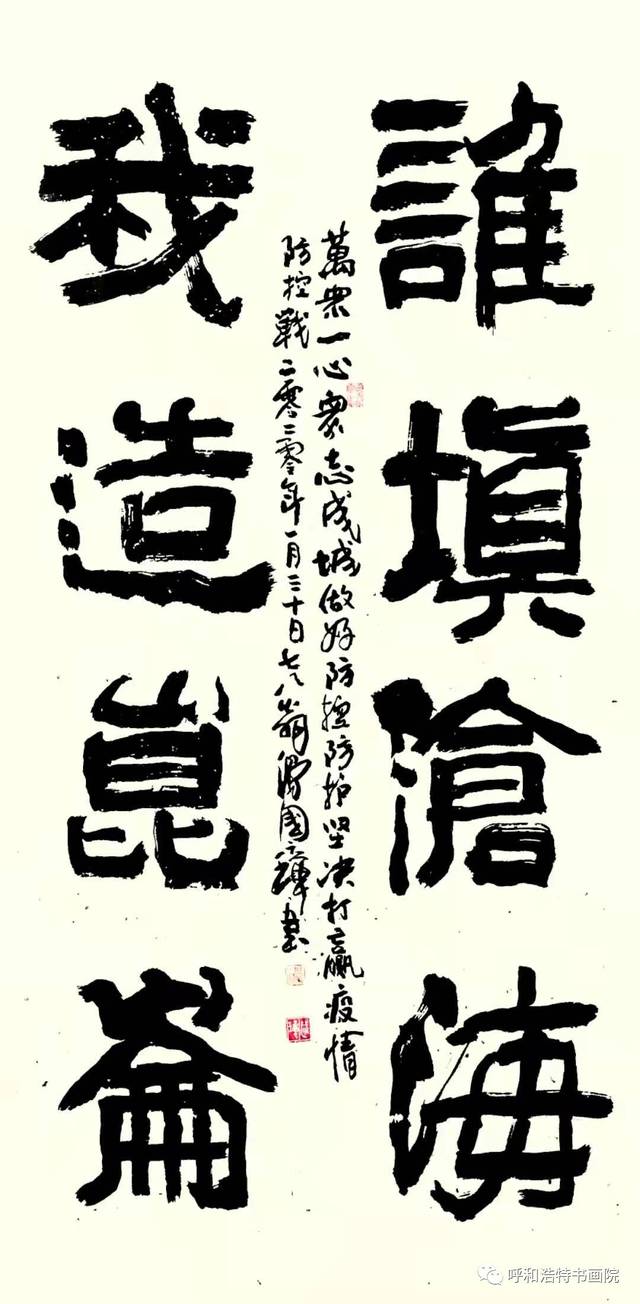 誰填滄海
萬衆一心衆志成城做好防控防护坚决打贏疫情
防控戰二零二零年一月三十日七八翁国書
我造崑崙
呼和浩特书画院